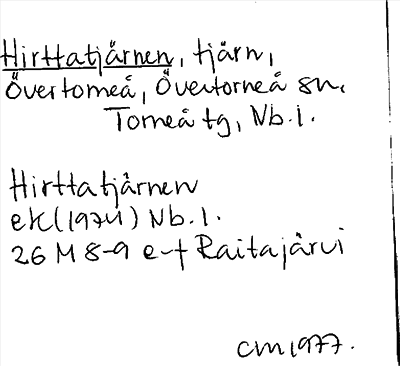 Hirttatjärnen, tjärn,
Övertorneå, Övertorneå sn,
Torneå tg, Nb.l.
Hirttatjärnen
ek (1974) Nb.l.
26 M 8-9 e-f Raitajärvi
CM 1977.